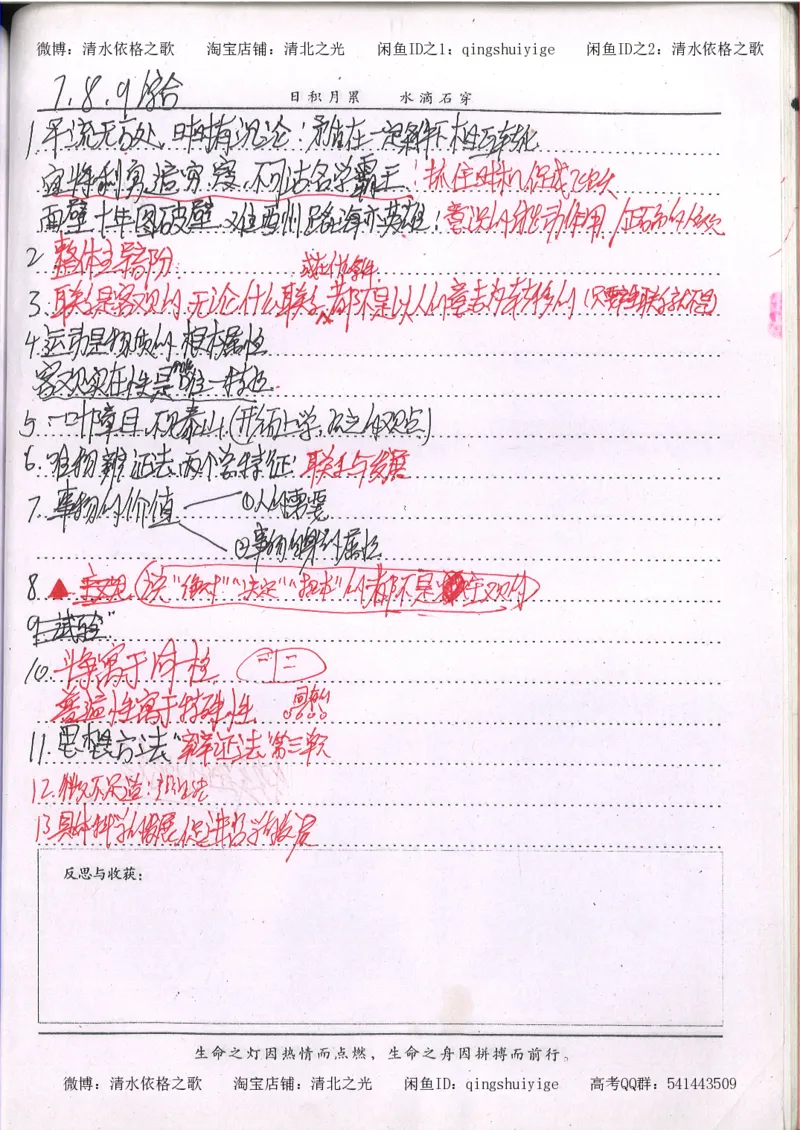 微博：清水依格之歌 淘宝店铺：清北之光 闲鱼ID之1：qingshuiyige 闲鱼ID之2：清水依格之歌
7.8.9综合
日积月累 水滴石穿
1.平流无石处，时时有沉沦：矛盾在一定条件下相互转化
宜将剩勇追穷寇，不可沽名学霸王：抓住时机促成飞跃
面壁十年图破壁，难酬蹈海亦英雄：意识的能动作用
2.整体主导部分
3.联系是客观的，无论什么联系，都不是以人的意志为转移的
4.运动是物质的根本属性
客观实在性是唯一特性
5.一叶障目，不见泰山（形而上学，的观点）
6.唯物辩证法两个总特征：联系与发展
7.事物的价值 ①人的需要
②事物的属性
8.▲主观 （说“绝对”“决定”的都不是主观的）
9.“试验”
10.共性寓于个性
普遍性寓于特殊性
11.思想方法“辩证法”第三款
12.
13.具体科学的发展促进哲学的发展
反思与收获：
生命之灯因热情而点燃，生命之舟因拼搏而前行。
微博：清水依格之歌 淘宝店铺：清北之光 闲鱼ID：qingshuiyige 高考QQ群：541443509